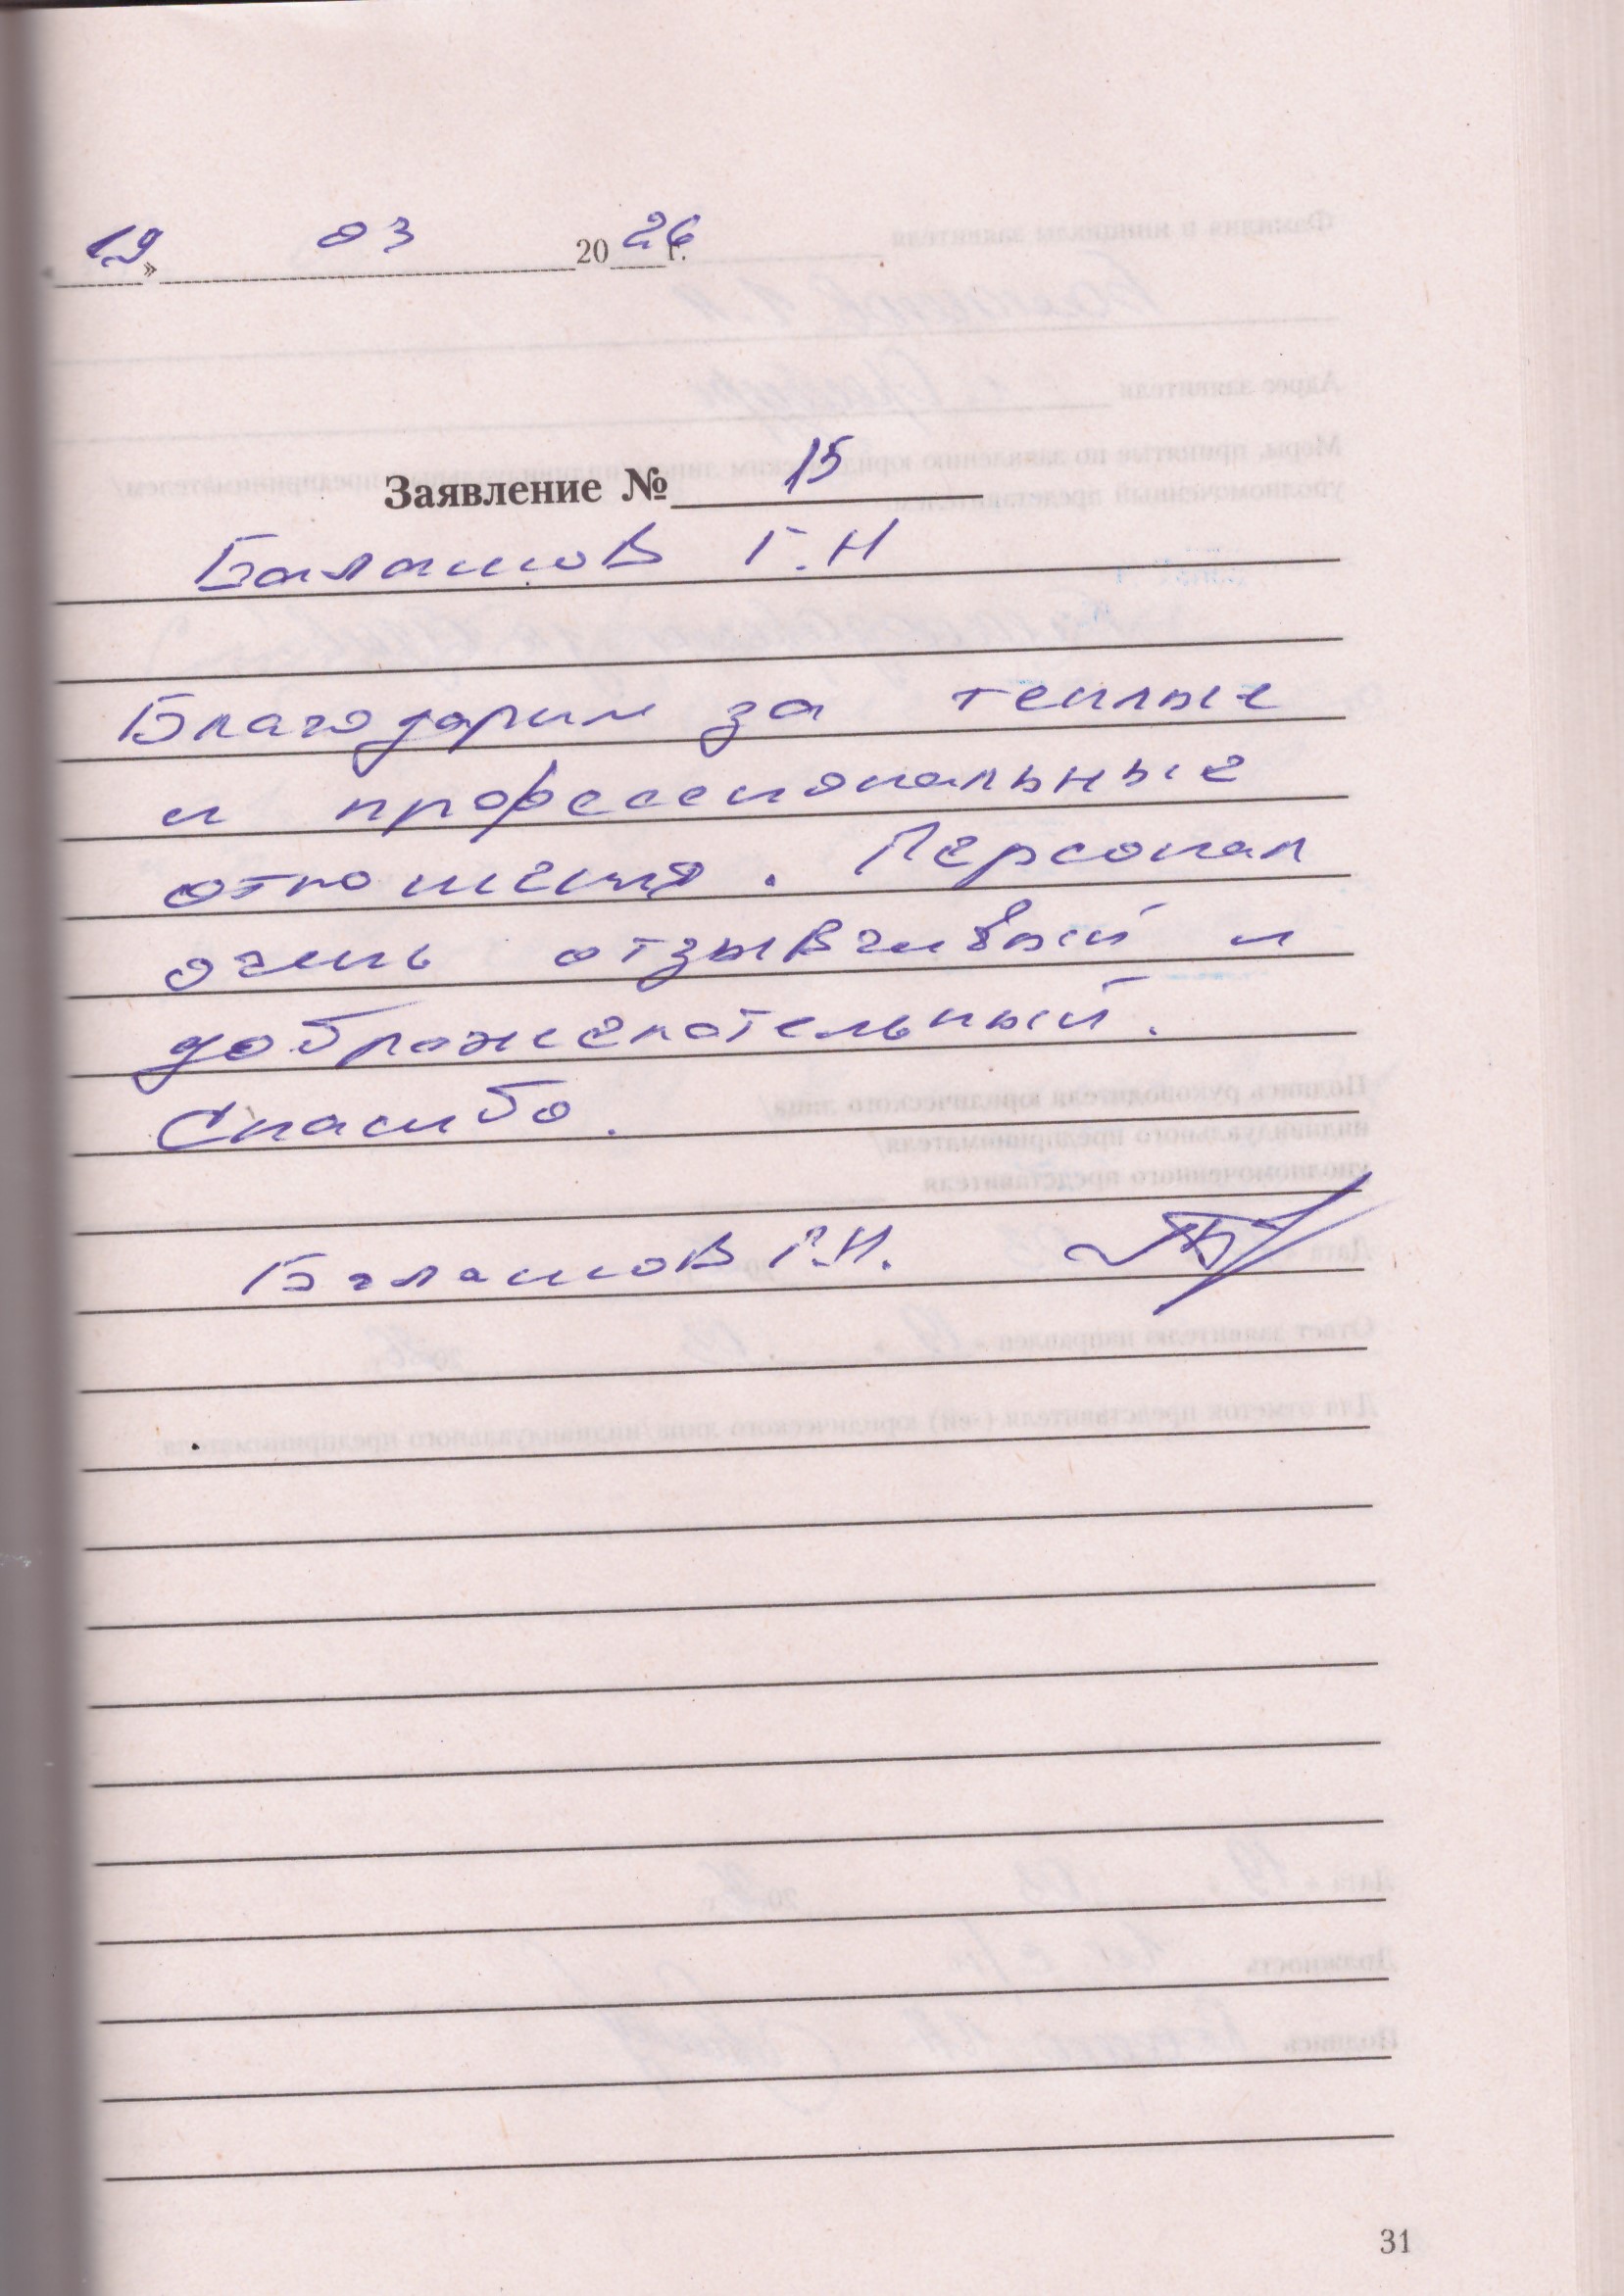 19» 03 2026 г.
Заявление № 15
Балашов Г.Н
Благодарим за теплые
и профессиональные
отношения. Персонал
очень отзывчивый и
доброжелательный.
Спасибо.
Балашов Г.Н.
31